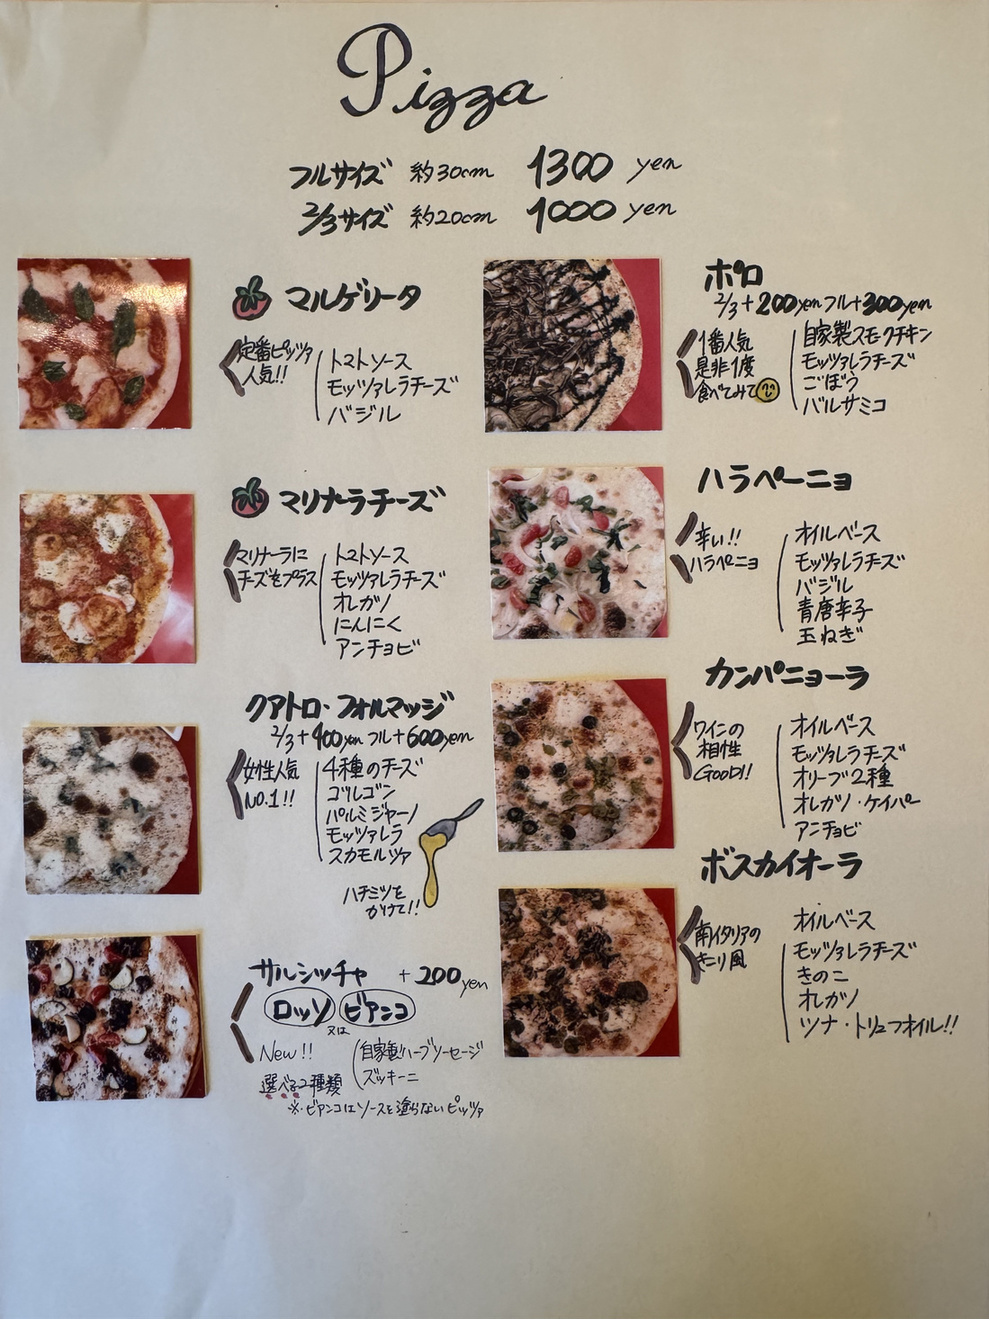 Pizza
フルサイズ 約30cm 1300 yen
2/3サイズ 約20cm 1000 yen
マルゲリータ
定番ピッツァ
人気!!
トマトソース
モッツァレラチーズ
バジル
マリナーラチーズ
マリナーラに
チーズをプラス
トマトソース
モッツァレラチーズ
オレガノ
にんにく
アンチョビ
クアトロ・フォルマッジ
2/3+400yen フル+600yen
女性人気
NO.1!!
4種のチーズ
ゴルゴン
パルミジャーノ
モッツァレラ
スカモルツァ
ハチミツを
かけて!!
サルシッチャ +200yen
ロッソ 又は ビアンコ
New!!
選べる2種類
自家製ハーブソーセージ
ズッキーニ
※・ビアンコはソースを塗らないピッツァ
ポロ
2/3+200yen フル+300yen
1番人気
是非1度
食べてみて
自家製スモークチキン
モッツァレラチーズ
ごぼう
バルサミコ
ハラペーニョ
辛い!!
ハラペーニョ
オイルベース
モッツァレラチーズ
バジル
青唐辛子
玉ねぎ
カンパニョーラ
ワインの
相性
GOOD!!
オイルベース
モッツァレラチーズ
オリーブ2種
オレガノ・ケイパー
アンチョビ
ボスカイオーラ
南イタリアの
きこり風
オイルベース
モッツァレラチーズ
きのこ
オレガノ
ツナ・トリュフオイル!!